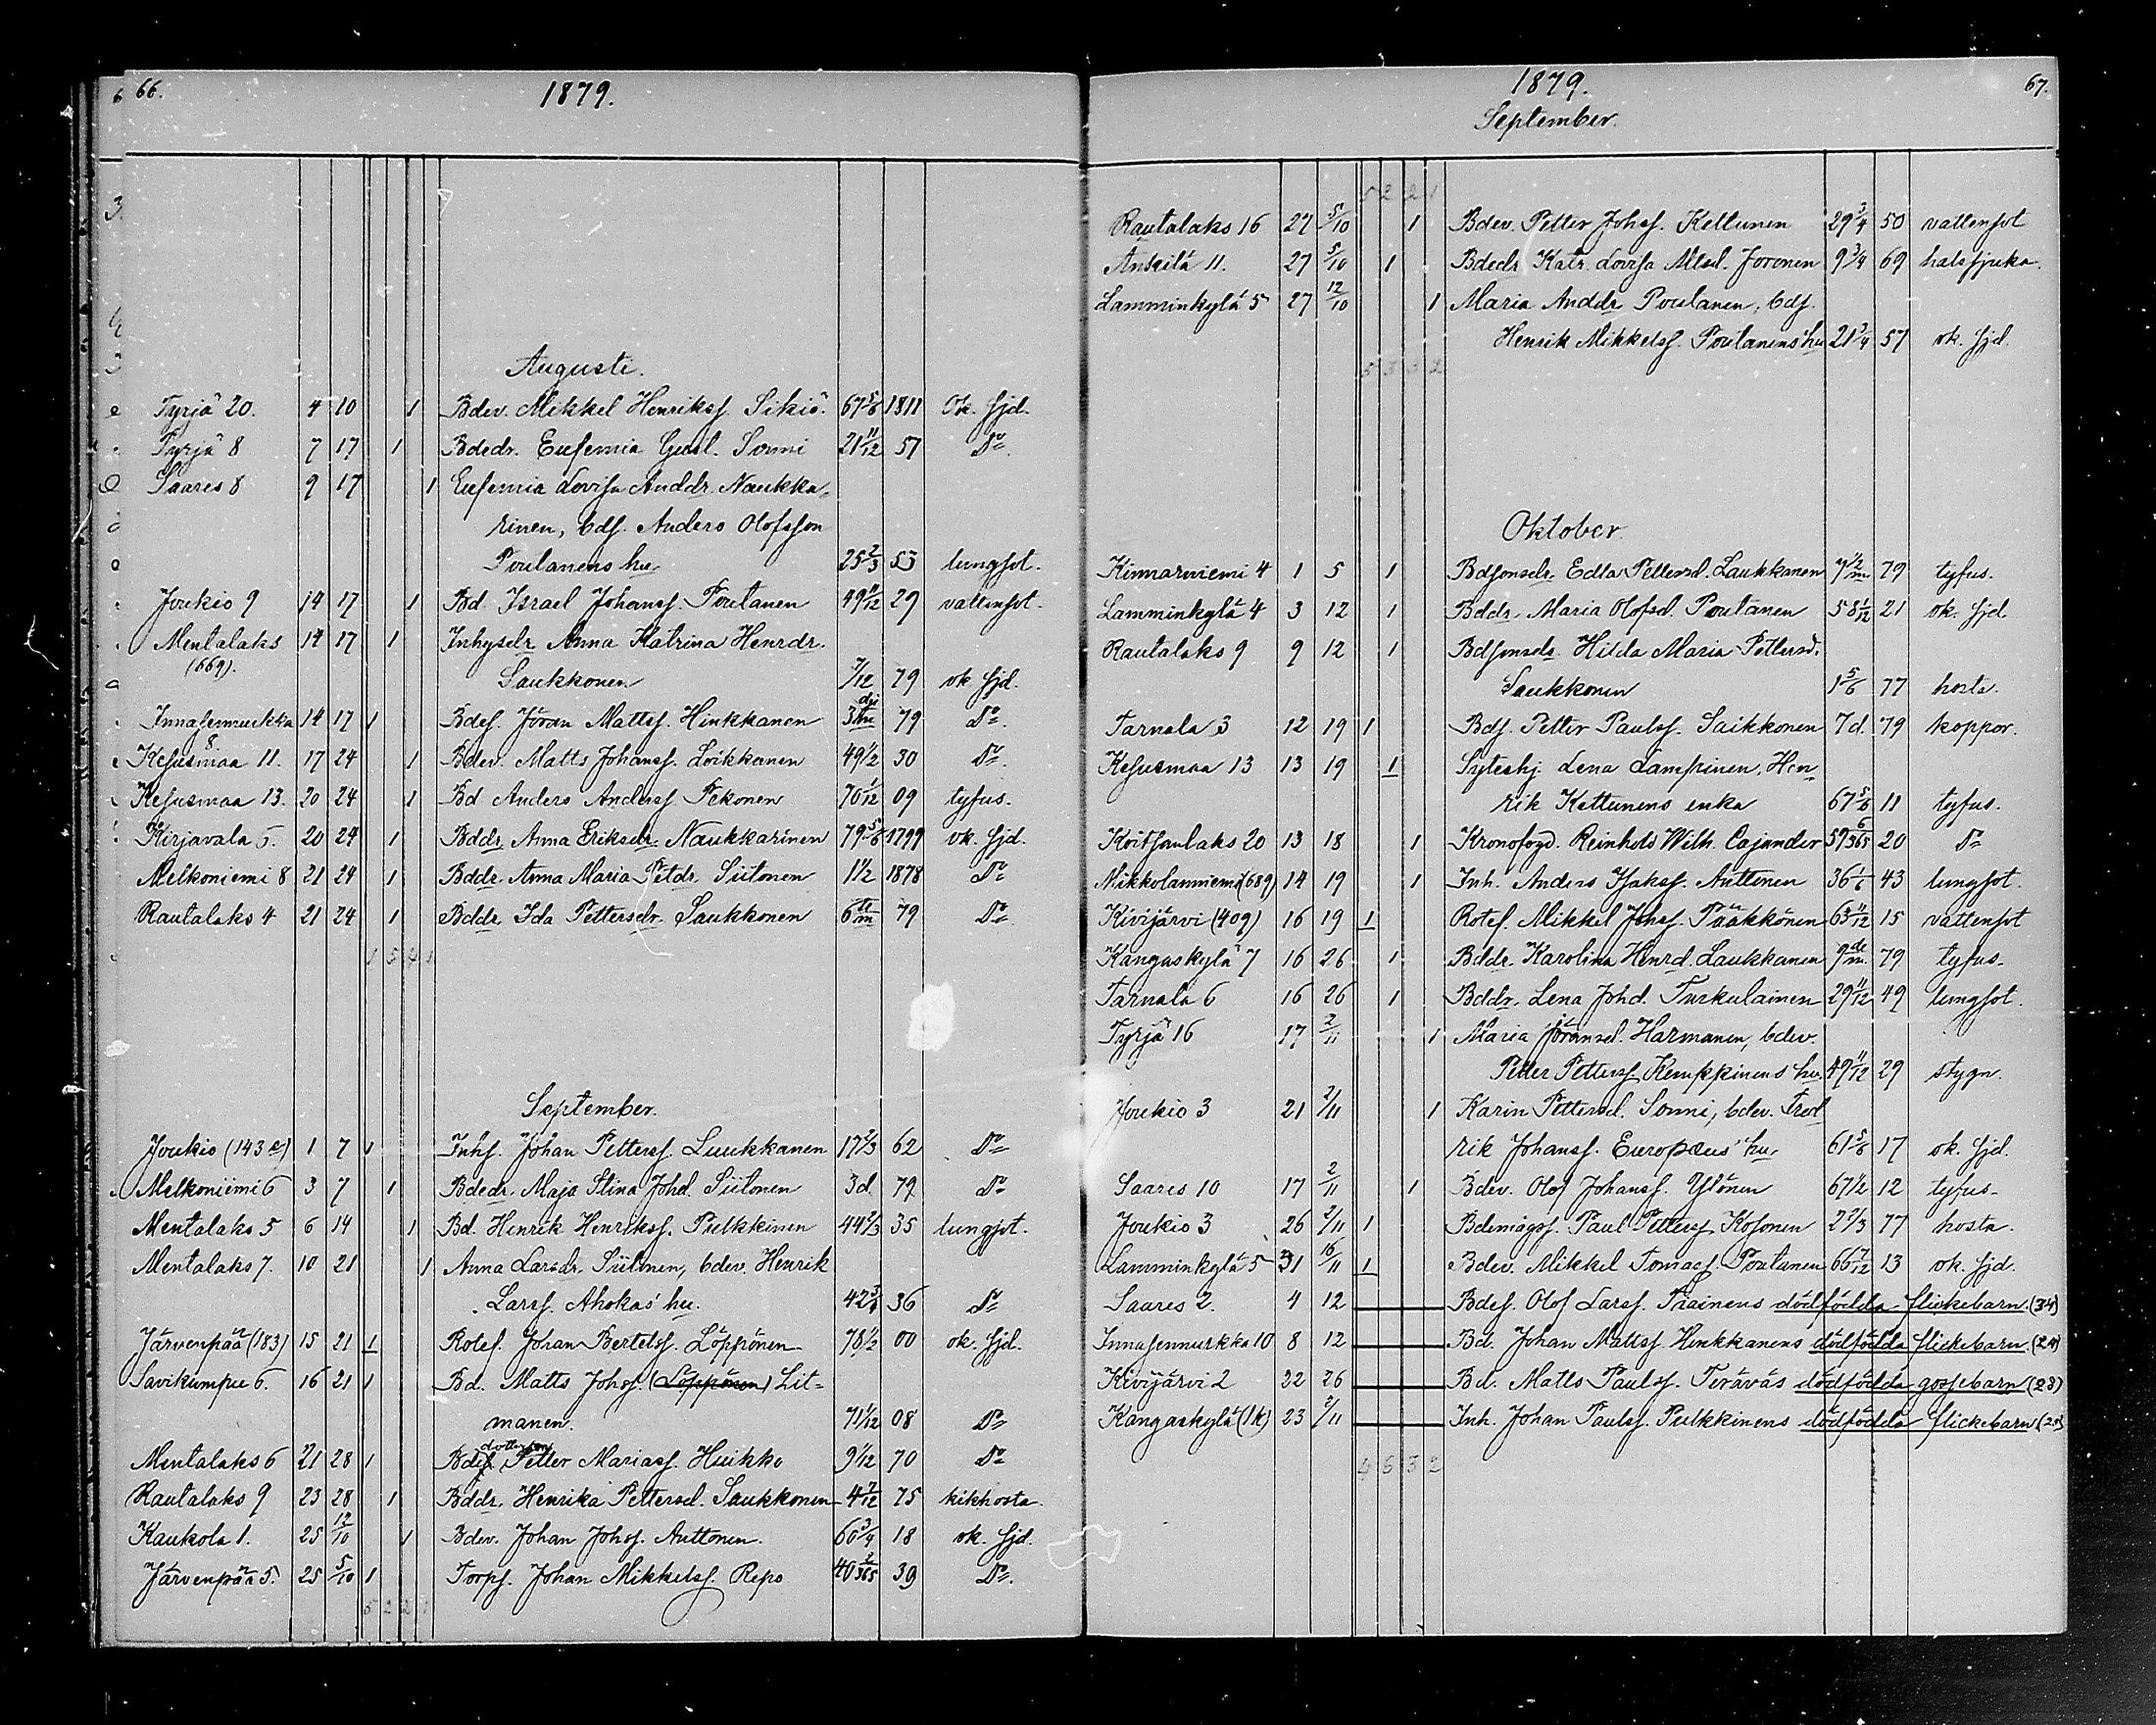 66.
1879.
Augusti.
Tyrjä 20. 4 10 1 Bdev. Mikkel Henrikss. Sikiö. 67 5/6 1811 Ok. sjd.
Tyrjä 8 7 17 1 Bdedr. Eufemia Gust. Sonni 21 11/12 57 Do
Saares 8 9 17 1 Eufemia Lovisa Anddr. Naukka-
rinen, bds. Anders Olofsson
Poutanens hu 25 2/3 53 lungsot.
Joukio 9 14 17 1 Bd Israel Johanss. Poutanen 49 11/12 29 vattensot.
Mentalaks 14 17 1 Inhysdr Anna Katrina Henrdr.
(669). Saukkonen 7/12 79 ok sjd.
Innasennurkka 14 17 1 Bdes. Jöran Mattss. Hinkkanen 3 79 Do.
8
Kesusmaa 11. 17 24 1 Bdev. Matts Johanss. Loikkanen 49 1/2 30 Do
Kesusmaa 13. 20 24 1 Bd Anders Anderss Pekonen 70 1/12 09 tyfus.
Kirjavala 5. 20 24 1 Bddr. Anna Eriksdr. Naukkarinen 79 5/6 1799 ok. sjd.
Melkoniemi 8 21 24 1 Bddr. Anna Maria Petdr. Siitonen 1 1/2 1878 Do
Rautalaks 4 21 24 1 Bddr. Ida Pettersdr. Saukkonen 6 m 79 Do
1 5 4 1
September.
Joukio (143 a) 1 7 1 Inhs. Johan Petterss. Luukkanen 17 2/3 62 Do
Melkoniemi 6 3 7 1 Bdedr. Maja Stina Johd. Siitonen 3 d. 79 Do
Mentalaks 5 6 14 1 Bd. Henrik Henrikss. Pulkkinen 44 2/3 35 lungsot.
Mentalaks 7. 10 21 1 Anna Larsdr. Siitonen, bdev. Henrik
Larss. Ahokas' hu. 42 3/4 36 Do
Järvenpää (183) 15 21 1 Rotes. Johan Bertelss. Löppönen 78 1/2 00 ok. sjd.
Savikumpu 6. 16 21 1 Bd. Matts Johss. (Löppönen) Lit-
manen. 71 1/12 08 Do
Mentalaks 6 21 28 1 Bde dotterson Petter Mariass. Huikko 9 1/12 70 Do
Rautalaks 9 23 28 1 Bddr. Henrika Pettersd. Saukkonen 4 7/12 75 kikhosta.
Kaukola 1. 25 12/10 1 Bdev. Johan Johss. Auttonen. 60 3/4 18 ok. sjd.
Järvenpää 5. 25 5/10 1 Torps. Johan Mikkelss. Repo 40 2/365 39 Do.
5 2 2 1
1879. 67.
September.
5 2 2 1
Rautalaks 16 27 5/10 1 Bdev. Petter Johss. Kettunen 29 3/4 50 vattensot
Anskilä 11. 27 5/10 1 Bdedr Katr. Lovisa Mtsd. Joronen 9 3/4 69 halssjuka.
Lamminkylä 5 27 12/10 1 Maria Anddr Poutanen, bds.
Henrik Mikkelss. Poutanens hu 21 3/4 57 ok. sjd.
5 3 3 2
Oktober
Kinnarniemi 4 1 5 1 Bdsonsdr. Edla Pettersd. Laukkanen 79 tyfus.
Lamminkylä 4 3 12 1 Bddr. Maria Olofsd. Poutanen 58 1/12 21 ok. sjd.
Rautalaks 9 9 12 1 Bdsonsdr. Hilda Maria Pettersd.
Saukkonen 1 5/6 77 hosta.
Tarnala 3 12 19 1 Bds. Petter Paulss. Saikkonen 7 d. 79 koppor.
Kesusmaa 13 13 19 1 Syteshj. Lena Lampinen, Hen-
rik Kettunens enka 67 5/6 11 tyfus.
Koitsanlaks 20 13 18 1 Kronofogd. Reinhold Wilh. Cajander 59 6/365 20 Do
Mikkolanniemi (689) 14 19 1 Inh. Anders Isakss. Auttonen 36 1/6 43 lungsot.
Kivijärvi (409) 16 19 1 Rotes. Mikkel Johss. Pääkkönen 63 11/12 15 vattensot
Kangaskylä 7 16 26 1 Bddr. Karolina Henrd. Laukkanen 9 m. 79 tyfus.
Tarnala 6 16 26 1 Bddr. Lena Johd. Turkulainen 29 11/12 49 lungsot.
Tyrjä 16 17 2/11 1 Maria Jöransd. Harmanen, bdev.
Petter Petterss. Kemppinens hu 49 11/12 29 stygn.
Joukio 3 21 2/11 1 Karin Pettersd. Sonni, bdev. Fred
rik Johanss. Europæus' hu. 61 5/6 17 ok. sjd.
Saares 10 17 2/11 1 Bdev. Olof Johanss. Ylönen 67 1/2 12 tyfus.
Joukio 3 26 2/11 1 Bdemågss. Paul Petterss Kosonen 2 2/3 77 hosta.
Lamminkylä 5 31 16/11 1 Bdev. Mikkel Tomass. Poutanen 66 7/12 13 ok. sjd.
Saares 2. 4 12 Bdes. Olof Larss. Piainens dödfödda flickebarn. (34)
Innasennurkka 10 8 12 Bd. Johan Mattss. Hinkkanens dödfödda flickebarn.
Kivijärvi 2 22 26 Bd. Matts Paulss. Teräväs dödfödda gossebarn (28)
Kangaskylä (1k) 23 2/11 Inh. Johan Paulss. Pulkkinens dödfödda flickebarn
4 6 3 2